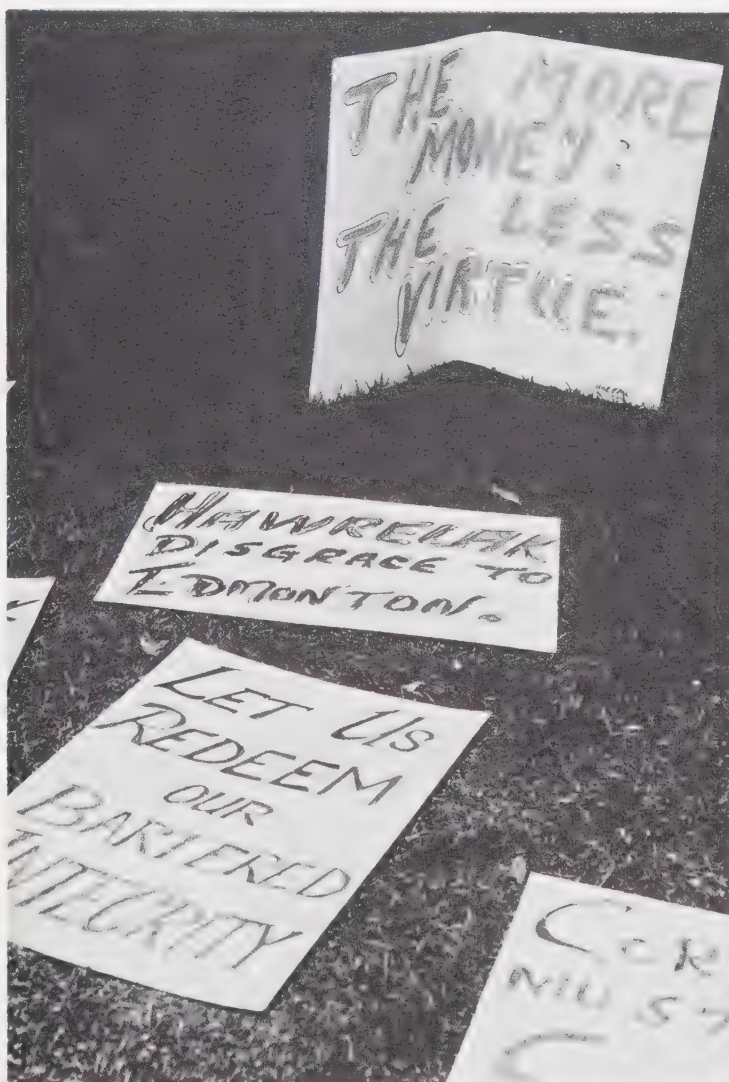 THE MORE
MONEY:
THE LESS
VIRTUE.
HAWRELAK
DISGRACE TO
EDMONTON.
LET US
REDEEM
OUR
BARTERED
INTEGRITY